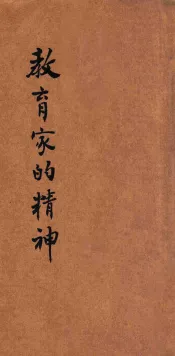 教育家的精神